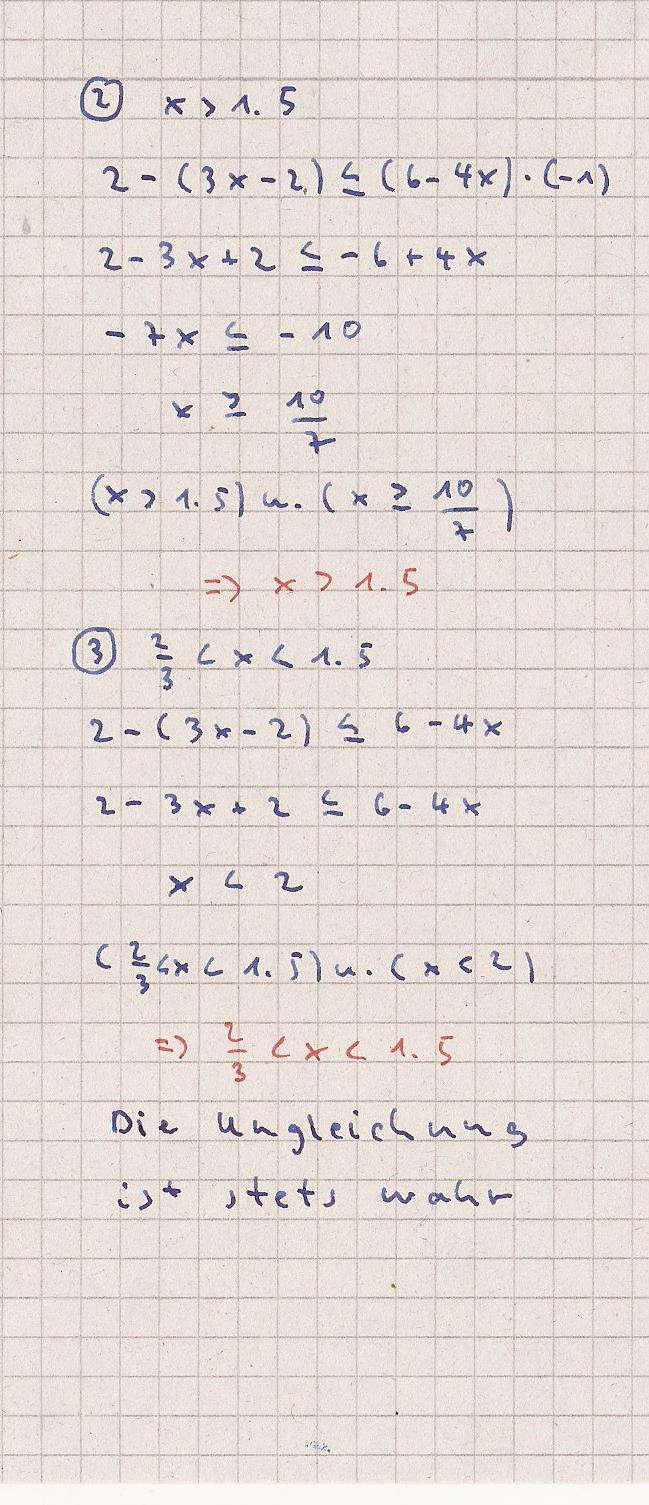 ② x > 1.5
2 - (3x - 2) ≤ (6 - 4x) · (-1)
2 - 3x + 2 ≤ -6 + 4x
-7x ≤ -10
x ≥ 10/7
(x > 1.5) u. (x ≥ 10/7)
=> x > 1.5
③ 2/3 < x < 1.5
2 - (3x - 2) ≤ 6 - 4x
2 - 3x + 2 ≤ 6 - 4x
x < 2
(2/3 < x < 1.5) u. (x < 2)
=> 2/3 < x < 1.5
Die Ungleichung
ist stets wahr